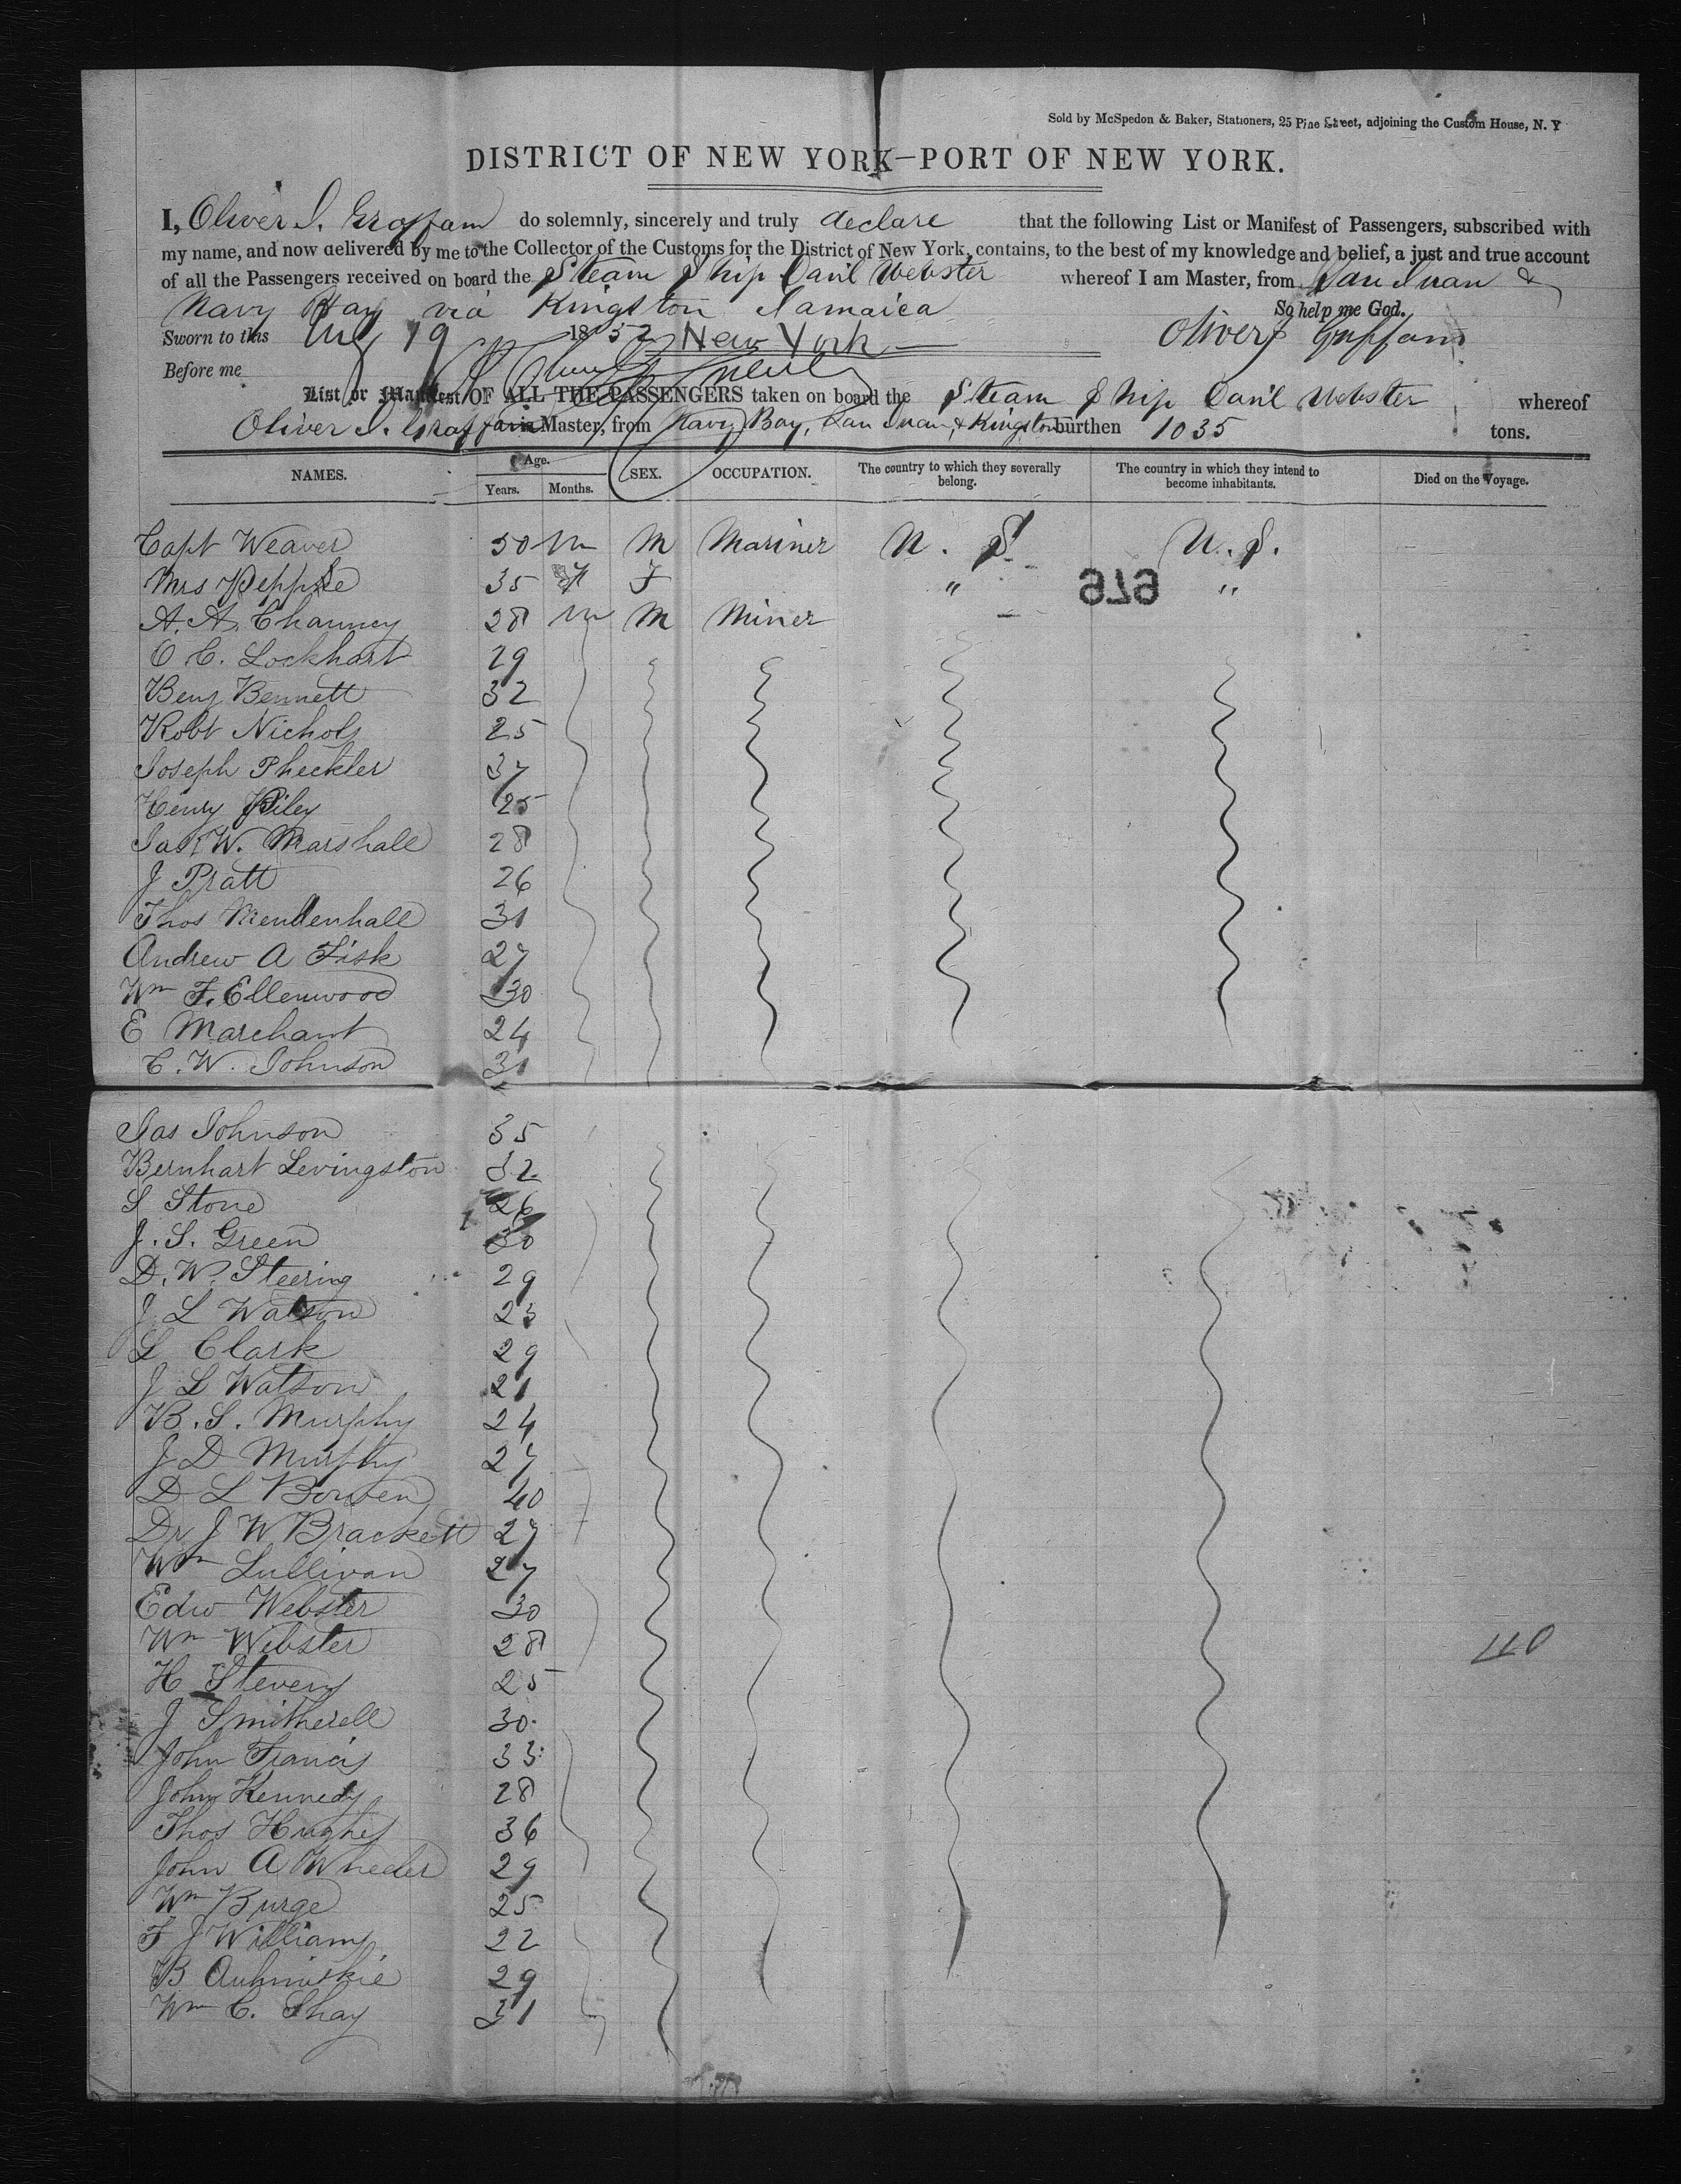 Sold by McSpedon & Baker, Stationers, 25 Pine Street, adjoining the Custom House, N. Y
DISTRICT OF NEW YORK—PORT OF NEW YORK.
I, Oliver J. Graffam do solemnly, sincerely and truly declare that the following List or Manifest of Passengers, subscribed with
my name, and now delivered by me to the Collector of the Customs for the District of New York, contains, to the best of my knowledge and belief, a just and true account
of all the Passengers received on board the Steam Ship Danl Webster whereof I am Master, from San Juan &
Navy Bay via Kingston Jamaica So help me God.
Sworn to this 19 1852 New York Oliver J Graffam
Before me
List or Manifest OF ALL THE PASSENGERS taken on board the Steam Ship Danl Webster whereof
Oliver J. Graffam is Master, from Navy Bay, San Juan, & Kingston burthen 1035 tons.
NAMES. Age. Years. Months. SEX. OCCUPATION. The country to which they severally belong. The country in which they intend to become inhabitants. Died on the Voyage.
Capt Weaver 50 M Mariner U. S. U. S.
Mrs 35 F " 979 "
A. A. Chauncy 28 M Miner
O C. Lockhart 29
Benj Bennett 32
Robt Nichols 25
Joseph Pheckler 37
Henry Riley 25
Jas W. Marshall 28
J Pratt 26
Thos Mendenhall 31
Andrew A Fisk 27
Wm F. Ellenwood 30
E Marchant 24
C. W. Johnson 31
Jas Johnson 35
Bernhart Levingston 32
S Stone 26
J. S. Green 30
D. W. Steering 29
J L Watson 23
L Clark 29
J L Watson 21
B. S. Murphy 24
J D Murphy 27
D L Bowen 40
Dr J W Brackett 27
Wm Sullivan 27
Edw Webster 30
Wm Webster 28
40
H Stevens 25
J Smitherell 30
John Francis 33
John Kennedy 28
Thos Hughes 36
John A Wheeler 29
Wm Burge 25
F J Williams 22
B 29
Wm C. Shay 31